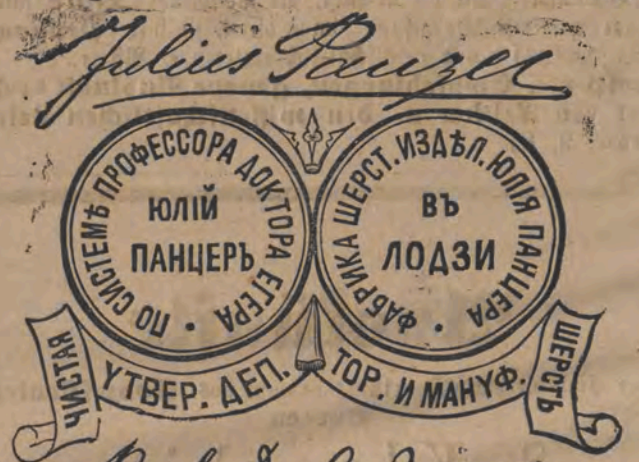 Julius Panzer
ПО СИСТЕМѢ ПРОФЕССОРА ДОКТОРА ЕГЕРА
ЮЛІЙ
ПАНЦЕРЪ
ФАБРИКА ШЕРСТ. ИЗДѢЛ. ЮЛІЯ ПАНЦЕРА
ВЪ
ЛОДЗИ
ЧИСТАЯ
УТВЕР. ДЕП. ТОР. И МАНУФ.
ШЕРСТЬ